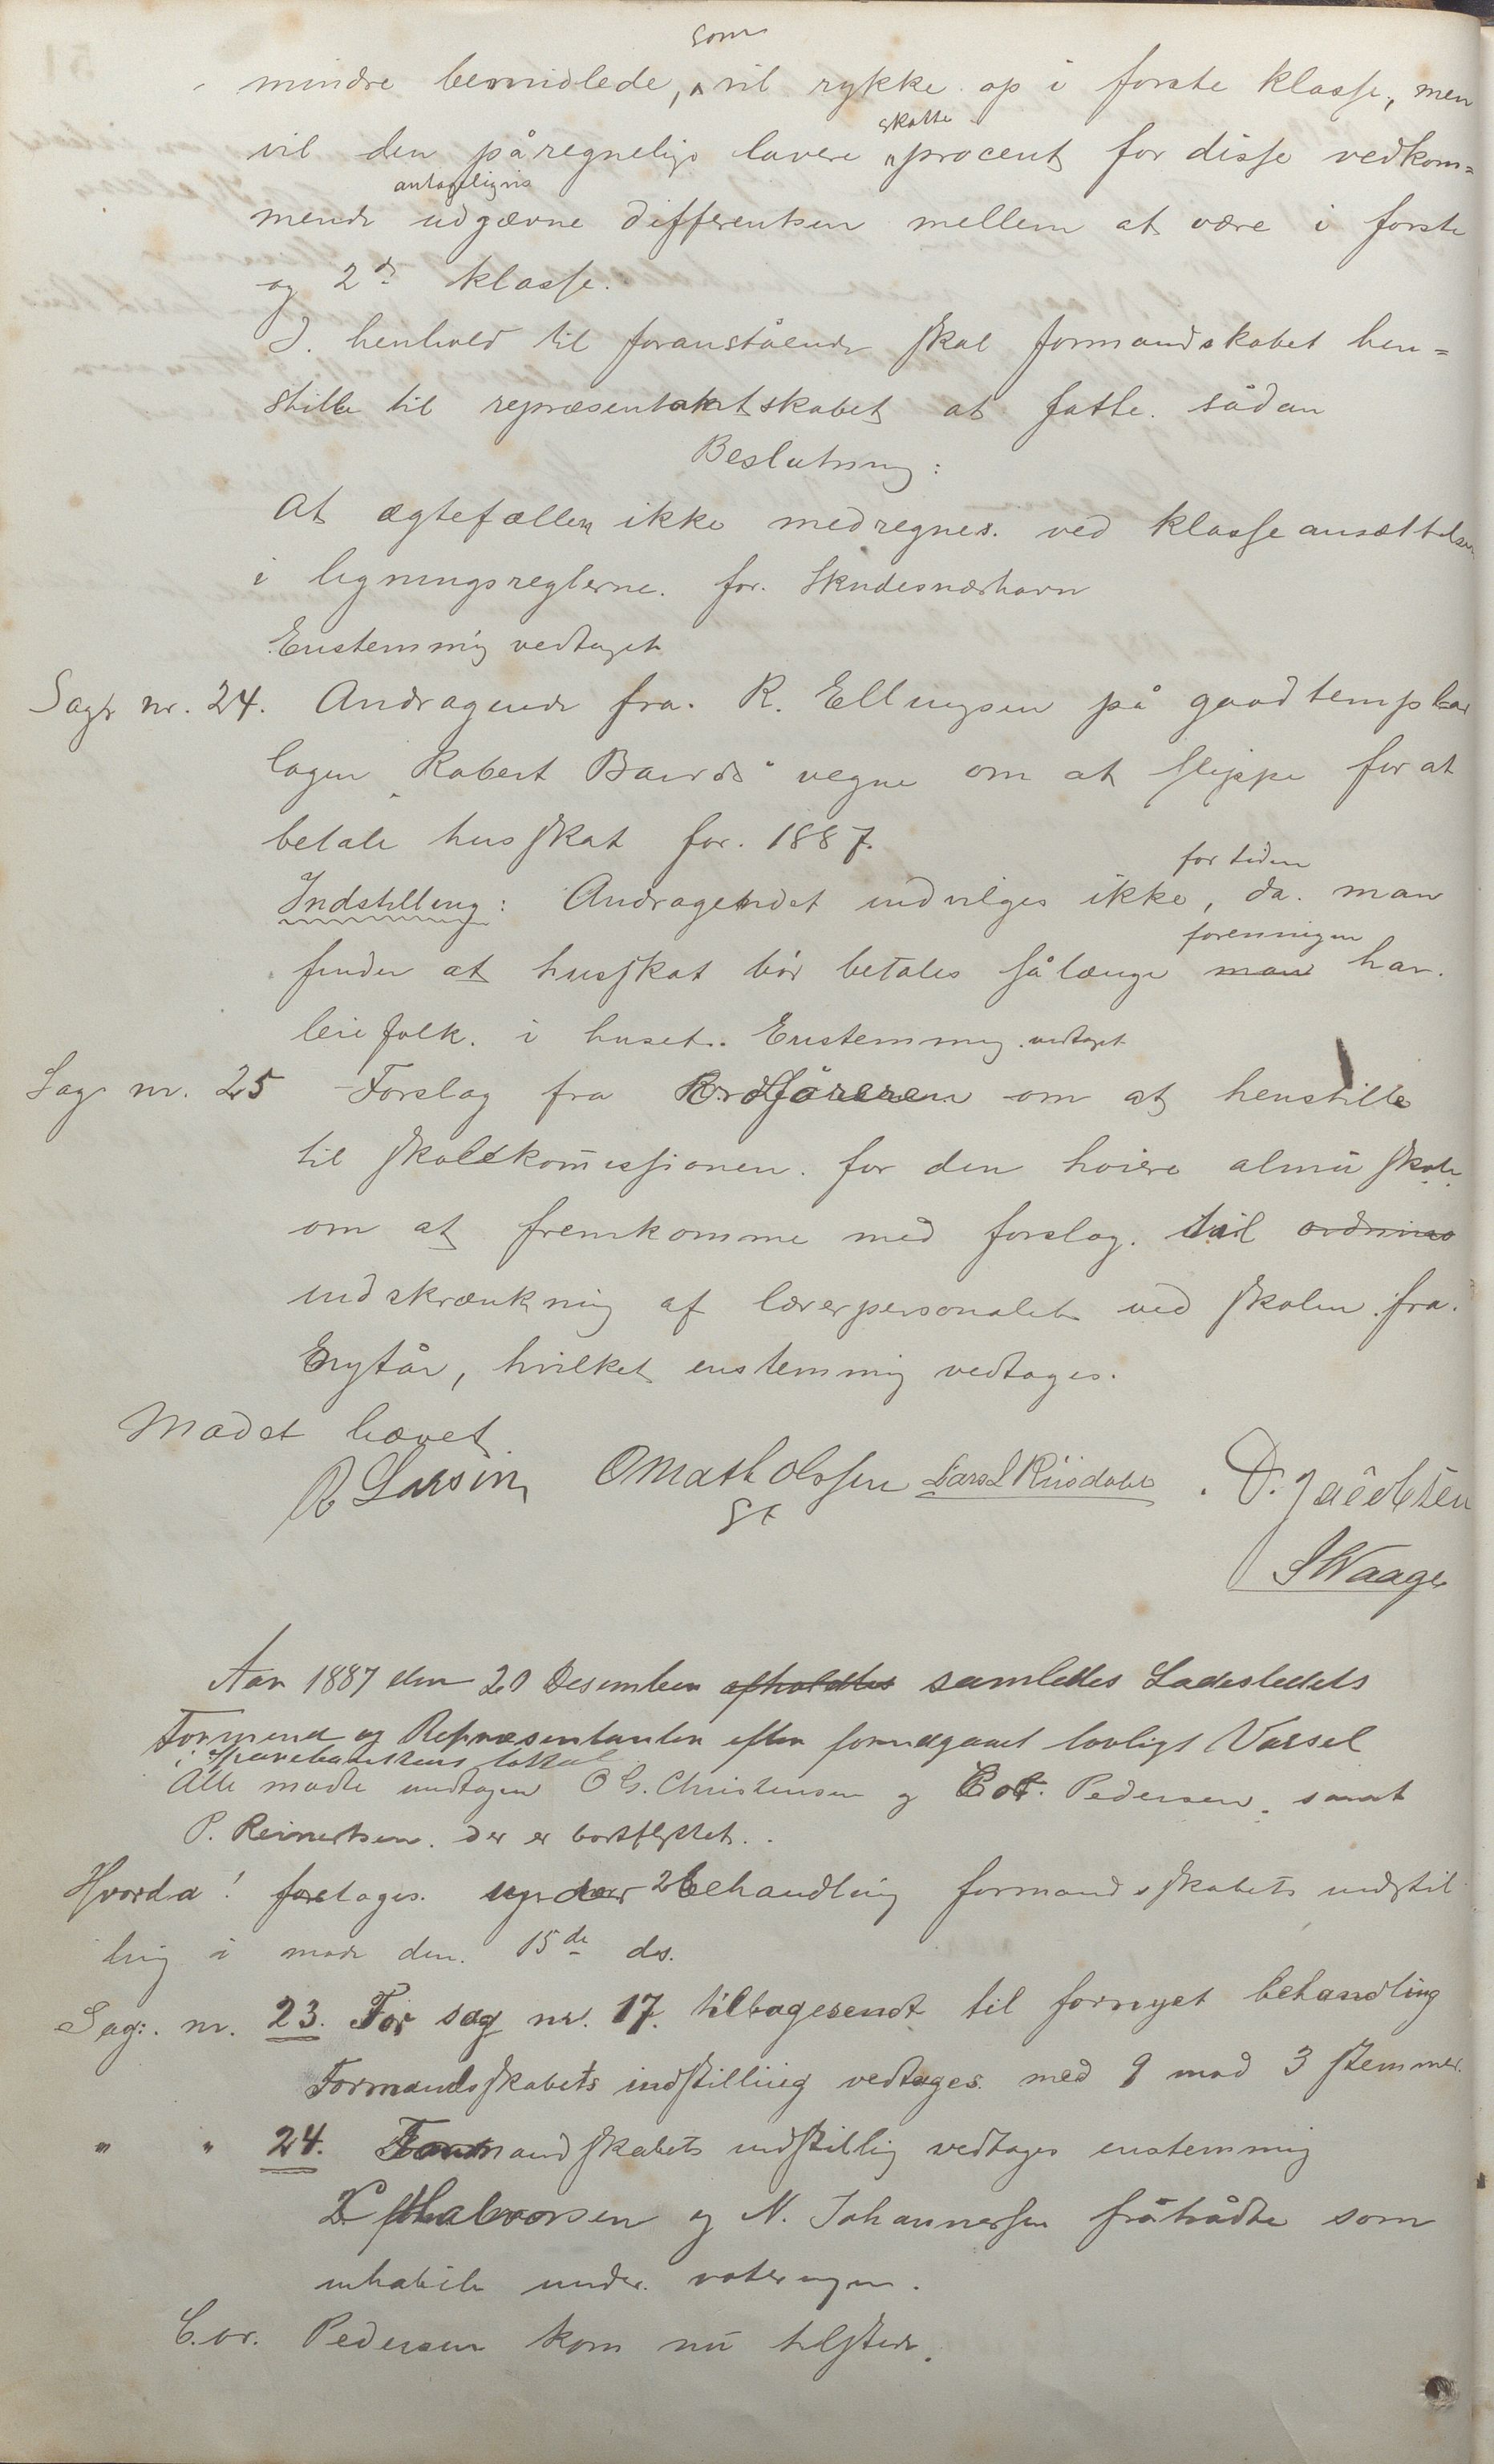 mindre bemidlede, som vil rykke op i første klasse, men
vil den påregnelige lavere skatteprocent for disse vedkom-
mende antageligvis udgævne differentsen mellem at være i første
og 2d klasse.
I henhold til foranstående skal formandskabet hen-
stille til repræsentantskabet at fatte sådan
Beslutning:
At ægtefællen ikke medregnes ved klasseansættelsen
i ligningsreglerne for Skudesneshavn
Enstemmig vedtaget
Sag nr. 24. Andragende fra R. Ellingsen på goodtemplar
logen "Robert Bairds" vegne om at slippe for at
betale husskat for 1887.
Indstilling: Andragendet indvilges ikke for tiden, da man
finder at husskat bør betales sålænge man foreningen har
leiefolk i huset. Enstemmig vedtaget
Sag nr. 25 Forslag fra Ordføreren om at henstille
til skolekomissionen for den høiere almuskole
om at fremkomme med forslag til ordning
indskrænkning af lærerpersonalet ved skolen fra
nytår, hvilket enstemmig vedtages.
Mødet hævet
R Larsen O Math Olssen Lars L Riisdahl D. Jacobsen
St
S Waage
Aar 1887 den 20 Desember afholdtes samledes Ladestedets
Formend og Repræsentanter efter forudgaaet lovligt Varsel
i Sparebankens lokal
Alle mødte undtagen O G. Christensen og Cor. Pedersen samt
P. Reinertsen der er bortflyttet.
Hvorda! foretages under behandling formandsskabets indstil
ling i møde den 15de ds.
Sag. nr. 23. Før sag nr. 17. tilbagesendt til fornyet behandling
Formandsskabets indstilling vedtages med 9 mod 3 stemmer.
" " 24. Formandskabets indstillig vedtages enstemmig
Halvorsen og N. Johannessen fratrådte som
inhabile under voteringen.
C. or. Pedersen kom nu tilstede.